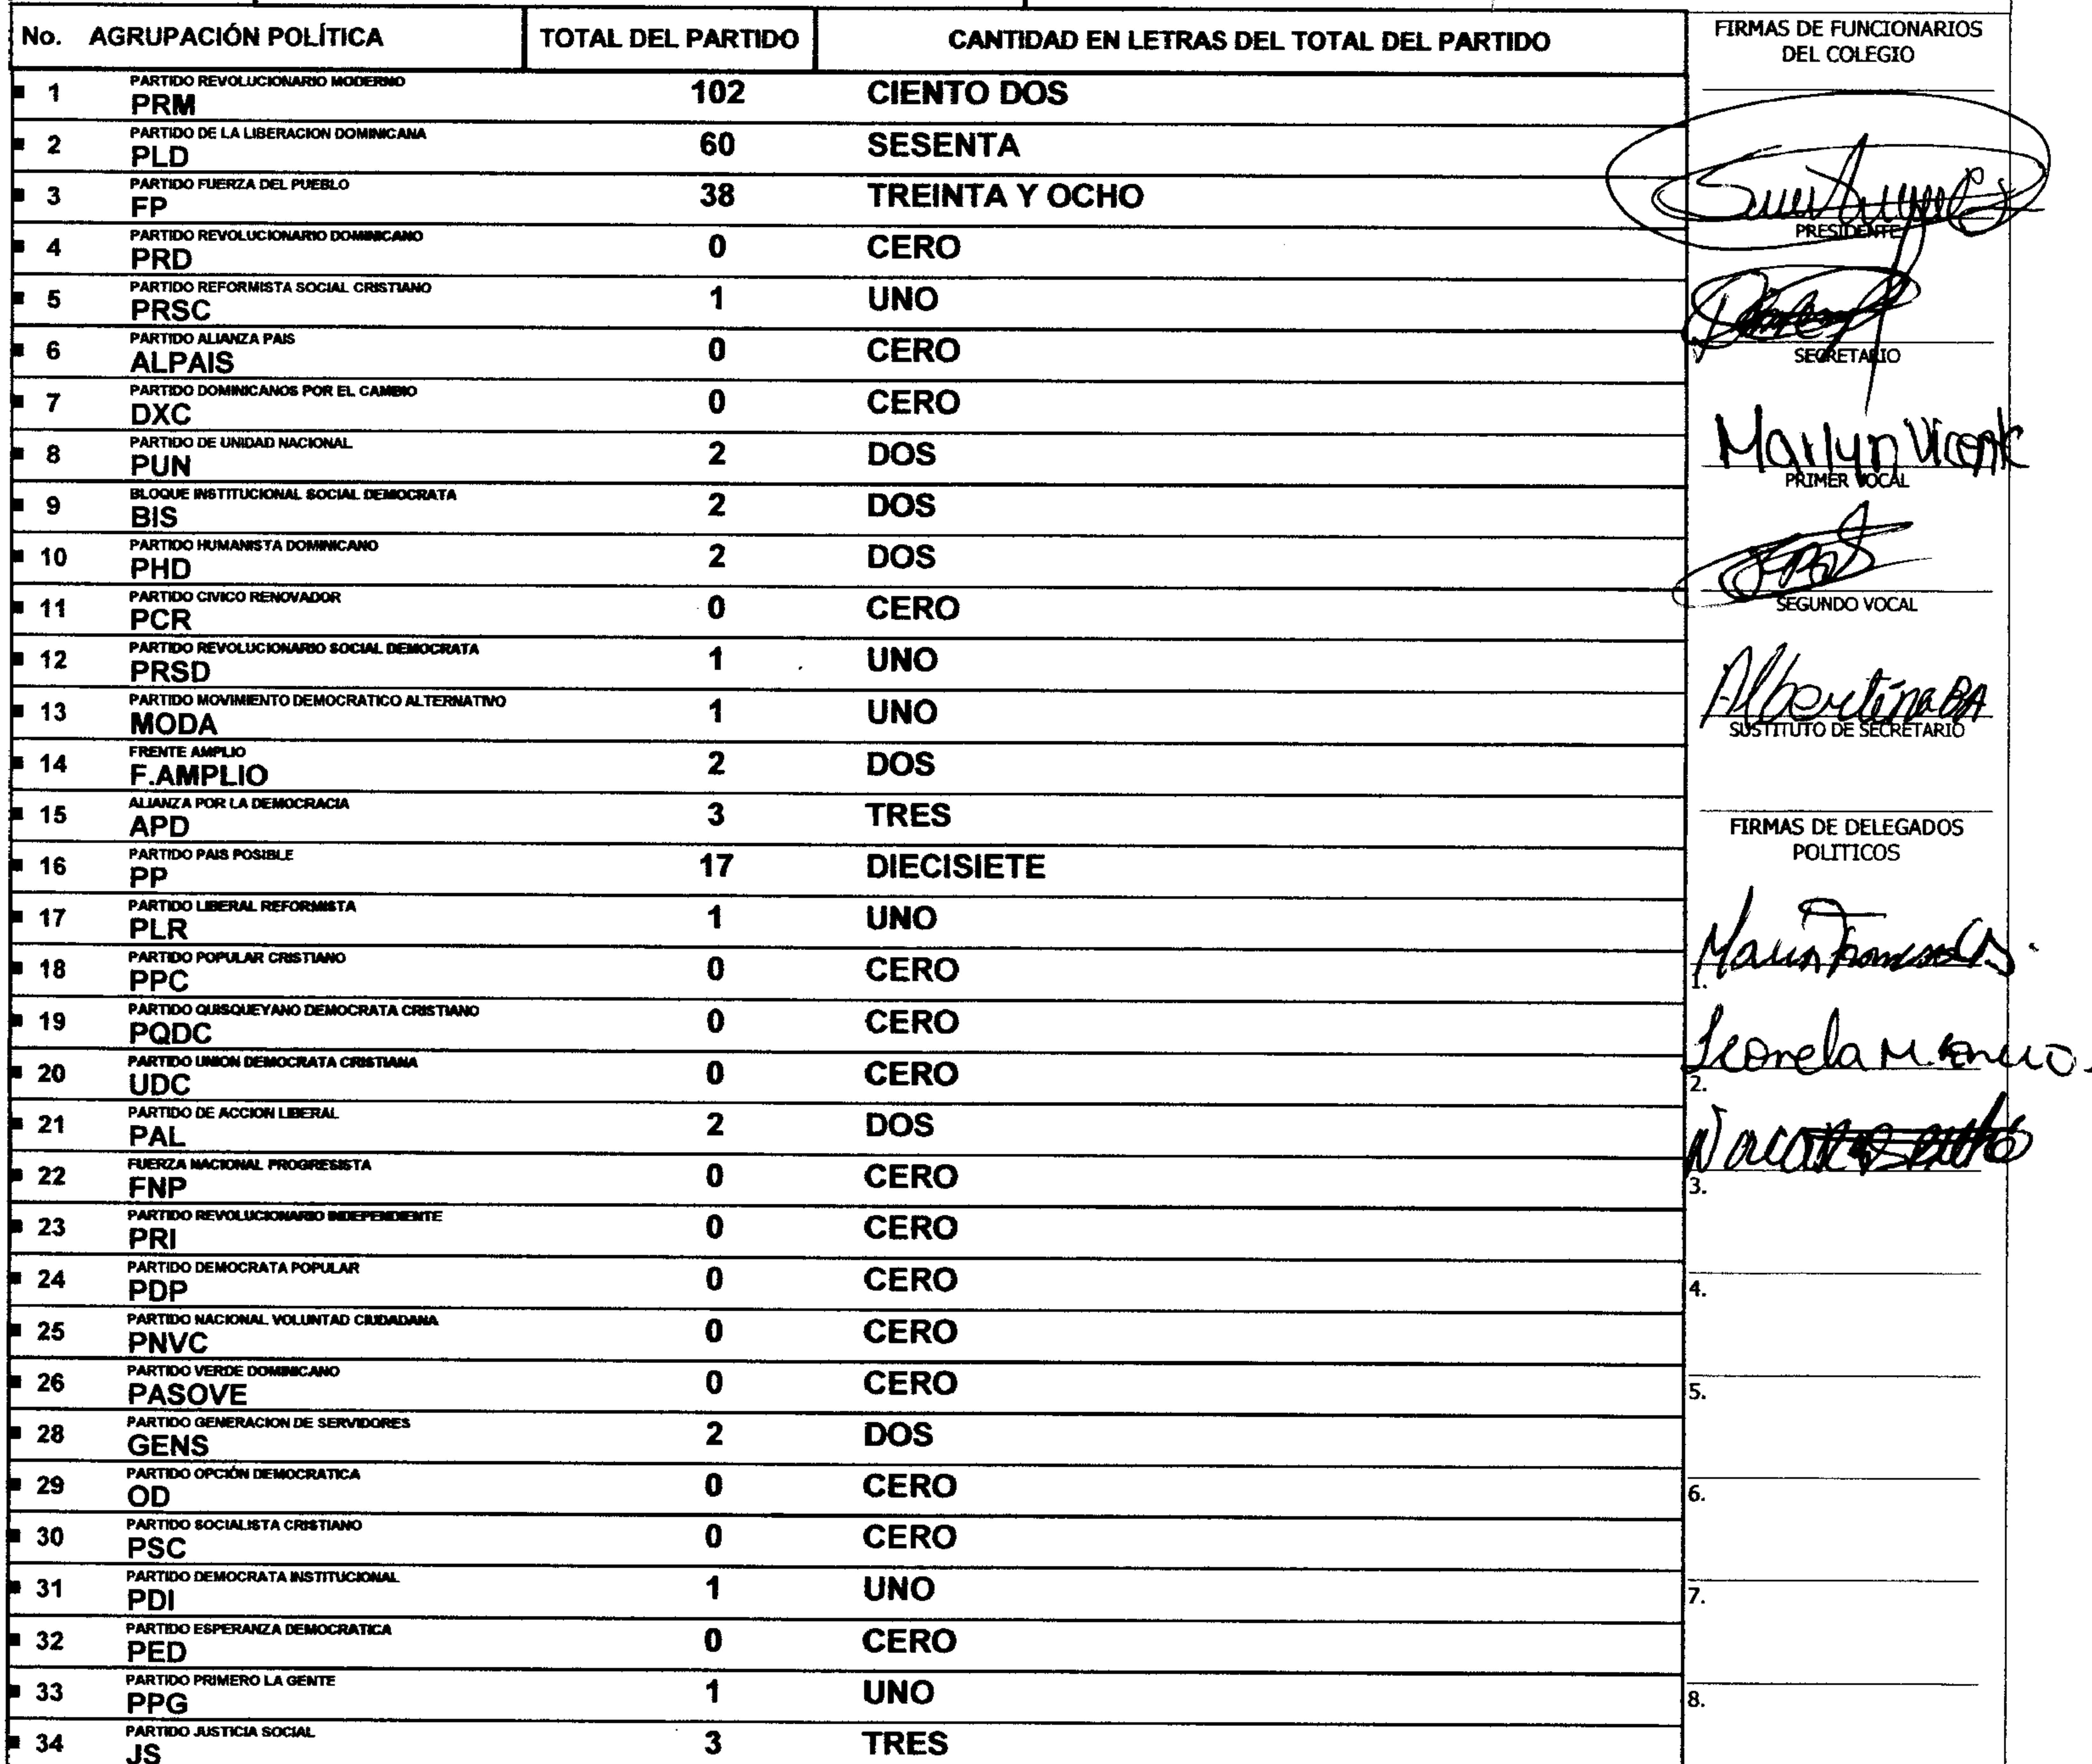 No. AGRUPACIÓN POLÍTICA TOTAL DEL PARTIDO CANTIDAD EN LETRAS DEL TOTAL DEL PARTIDO
1 PARTIDO REVOLUCIONARIO MODERNO
PRM 102 CIENTO DOS
2 PARTIDO DE LA LIBERACION DOMINICANA
PLD 60 SESENTA
3 PARTIDO FUERZA DEL PUEBLO
FP 38 TREINTA Y OCHO
4 PARTIDO REVOLUCIONARIO DOMINICANO
PRD 0 CERO
5 PARTIDO REFORMISTA SOCIAL CRISTIANO
PRSC 1 UNO
6 PARTIDO ALIANZA PAIS
ALPAIS 0 CERO
7 PARTIDO DOMINICANOS POR EL CAMBIO
DXC 0 CERO
8 PARTIDO DE UNIDAD NACIONAL
PUN 2 DOS
9 BLOQUE INSTITUCIONAL SOCIAL DEMOCRATA
BIS 2 DOS
10 PARTIDO HUMANISTA DOMINICANO
PHD 2 DOS
11 PARTIDO CIVICO RENOVADOR
PCR 0 CERO
12 PARTIDO REVOLUCIONARIO SOCIAL DEMOCRATA
PRSD 1 UNO
13 PARTIDO MOVIMIENTO DEMOCRATICO ALTERNATIVO
MODA 1 UNO
14 FRENTE AMPLIO
F.AMPLIO 2 DOS
15 ALIANZA POR LA DEMOCRACIA
APD 3 TRES
16 PARTIDO PAIS POSIBLE
PP 17 DIECISIETE
17 PARTIDO LIBERAL REFORMISTA
PLR 1 UNO
18 PARTIDO POPULAR CRISTIANO
PPC 0 CERO
19 PARTIDO QUISQUEYANO DEMOCRATA CRISTIANO
PQDC 0 CERO
20 PARTIDO UNION DEMOCRATA CRISTIANA
UDC 0 CERO
21 PARTIDO DE ACCION LIBERAL
PAL 2 DOS
22 FUERZA NACIONAL PROGRESISTA
FNP 0 CERO
23 PARTIDO REVOLUCIONARIO INDEPENDIENTE
PRI 0 CERO
24 PARTIDO DEMOCRATA POPULAR
PDP 0 CERO
25 PARTIDO NACIONAL VOLUNTAD CIUDADANA
PNVC 0 CERO
26 PARTIDO VERDE DOMINICANO
PASOVE 0 CERO
28 PARTIDO GENERACION DE SERVIDORES
GENS 2 DOS
29 PARTIDO OPCIÓN DEMOCRATICA
OD 0 CERO
30 PARTIDO SOCIALISTA CRISTIANO
PSC 0 CERO
31 PARTIDO DEMOCRATA INSTITUCIONAL
PDI 1 UNO
32 PARTIDO ESPERANZA DEMOCRATICA
PED 0 CERO
33 PARTIDO PRIMERO LA GENTE
PPG 1 UNO
34 PARTIDO JUSTICIA SOCIAL
JS 3 TRES
FIRMAS DE FUNCIONARIOS
DEL COLEGIO
PRESIDENTE
SECRETARIO
Marlyn Vicente
PRIMER VOCAL
SEGUNDO VOCAL
Albertina BA
SUSTITUTO DE SECRETARIO
FIRMAS DE DELEGADOS
POLITICOS
1.
Leonela M.
2.
3.
4.
5.
6.
7.
8.